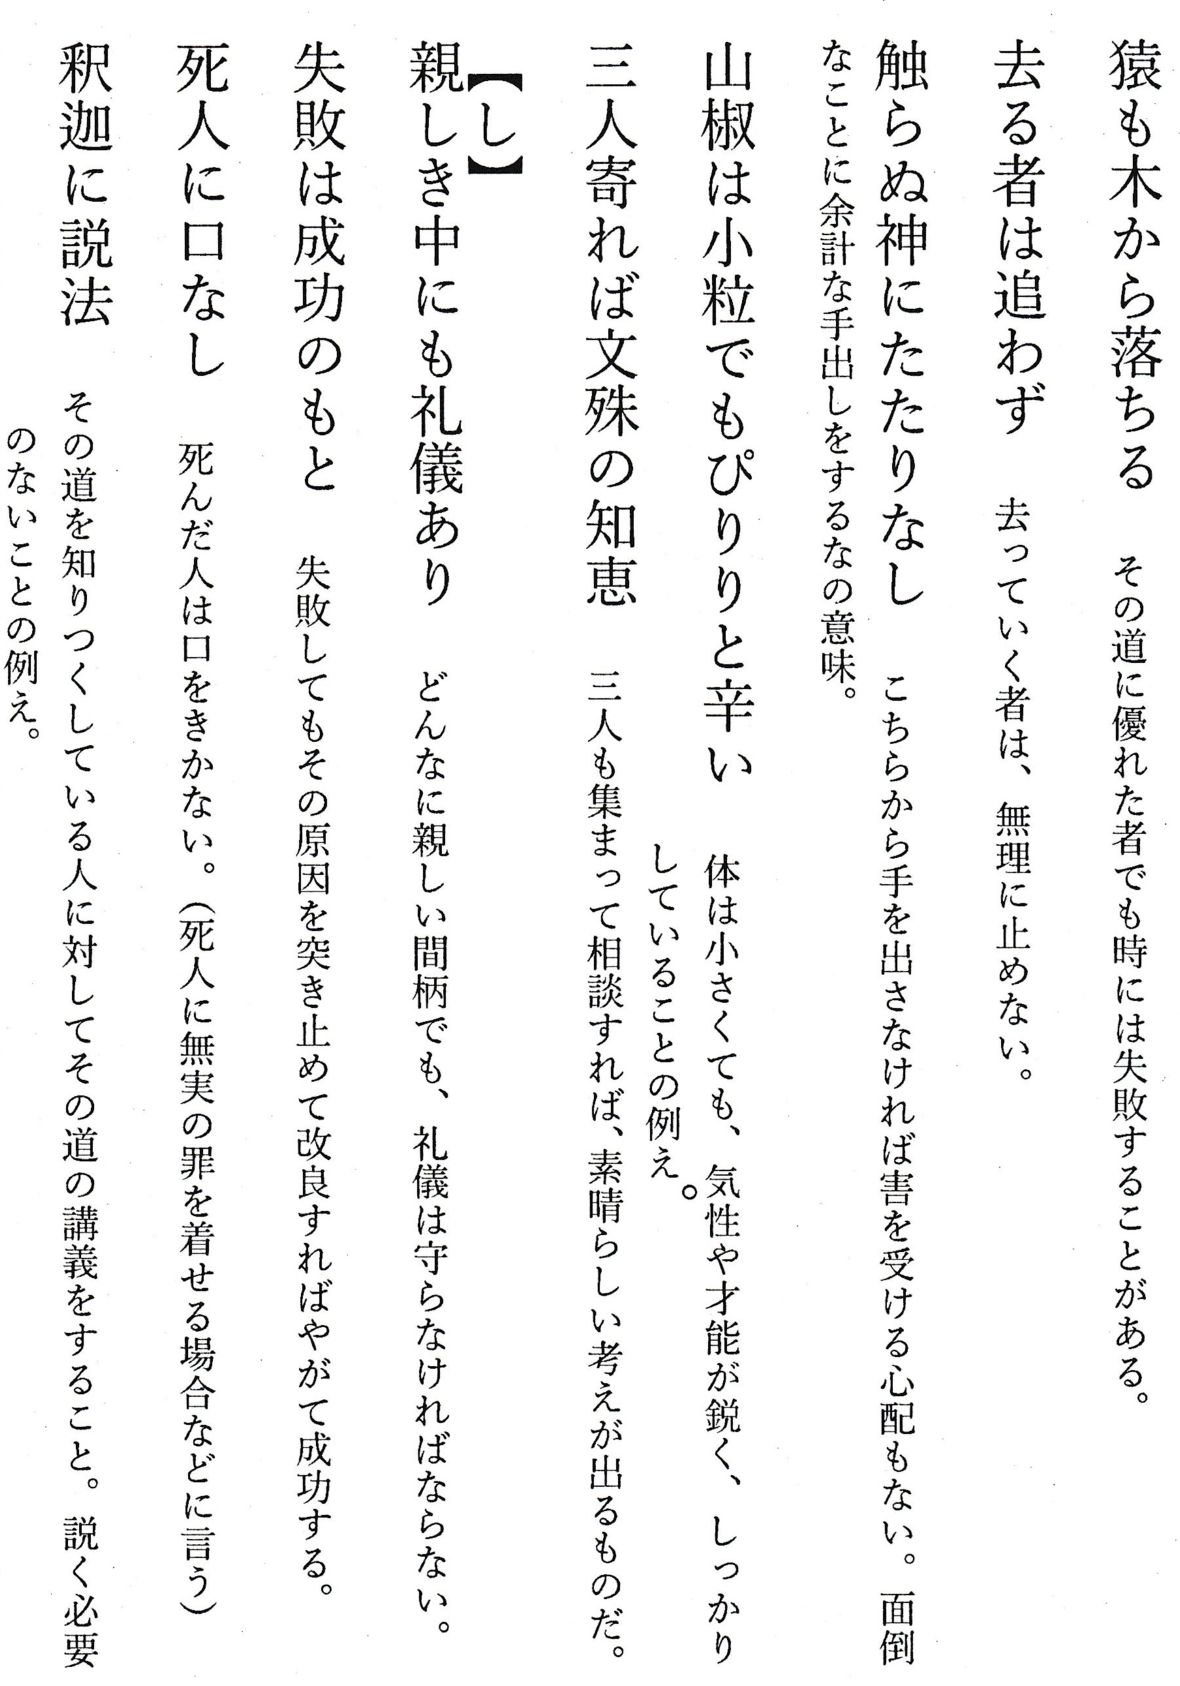 猿も木から落ちる　その道に優れた者でも時には失敗することがある。
去る者は追わず　去っていく者は、無理に止めない。
触らぬ神にたたりなし　こちらから手を出さなければ害を受ける心配もない。面倒
なことに余計な手出しをするなの意味。
山椒は小粒でもぴりりと辛い　体は小さくても、気性や才能が鋭く、しっかり
していることの例え。
三人寄れば文殊の知恵　三人も集まって相談すれば、素晴らしい考えが出るものだ。
【し】
親しき中にも礼儀あり　どんなに親しい間柄でも、礼儀は守らなければならない。
失敗は成功のもと　失敗してもその原因を突き止めて改良すればやがて成功する。
死人に口なし　死んだ人は口をきかない。（死人に無実の罪を着せる場合などに言う）
釈迦に説法　その道を知りつくしている人に対してその道の講義をすること。説く必要
のないことの例え。